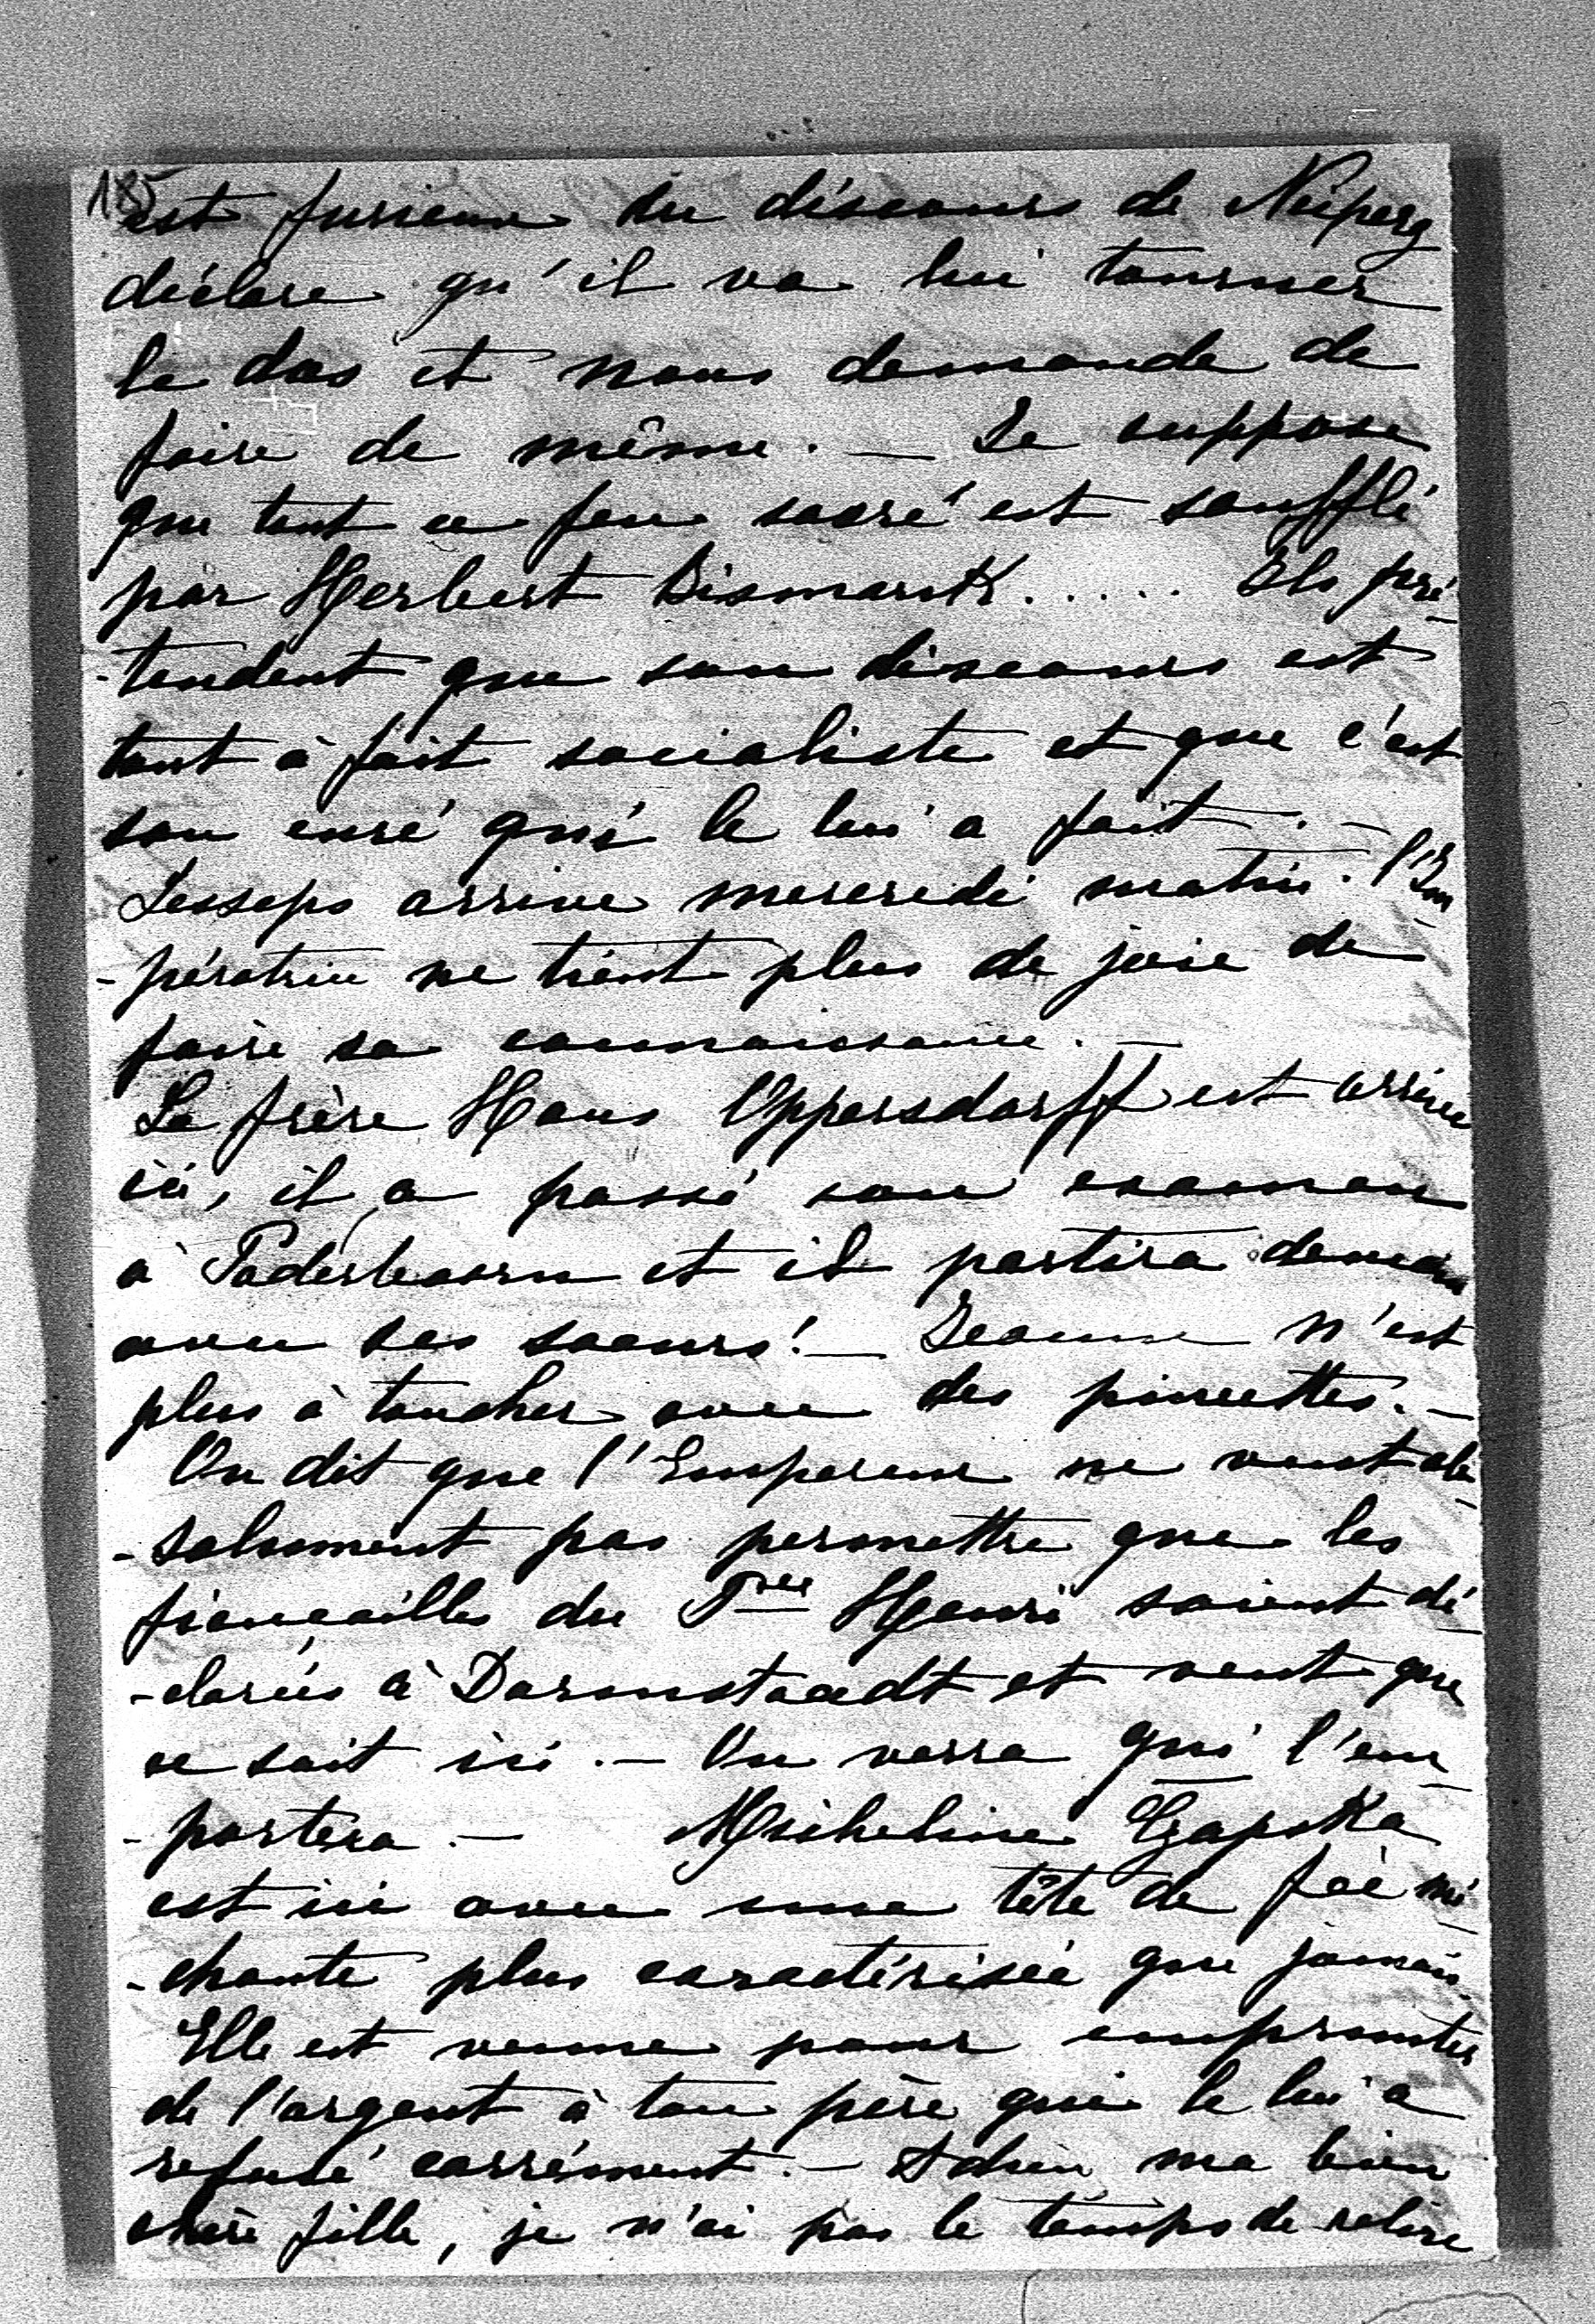 185
est furieux du discours de Neiperg
déclare qu'il va lui tourner
le dos et nous demande de
faire de même. — Je suppose
que tout ce feu sacré est soufflé
par Herbert Bismarck..... Ils pré-
-tendent que son discours est
tout à fait socialiste et que c'est
son curé qui le lui a fait. —
Lesseps arrive mercredi matin. l'Im-
-pératrice ne tient plus de joie de
faire sa connaissance. —
Le frère Hans Oppersdorff est arrivé
ici, il a passé son examen
à Paderboorn et il partira demain
avec ses soeurs! — Jeanne n'est
plus à toucher avec des pincettes. —
On dit que l'Empereur ne veut ab-
-solument pas permettre que les
fiançailles du Pce Henri soient dé-
-clarées à Darmstaadt et veut que
ce soit ici. — On verra qui l'em-
-portera — Micheline Czapska
est ici avec une tête de fée mé-
-chante plus caractérisée que jamais.
Elle est venue pour emprunter
de l'argent à ton père qui le lui a
refusé carrément. — Adieu ma bien
chère fille, je n'ai pas le temps de relire